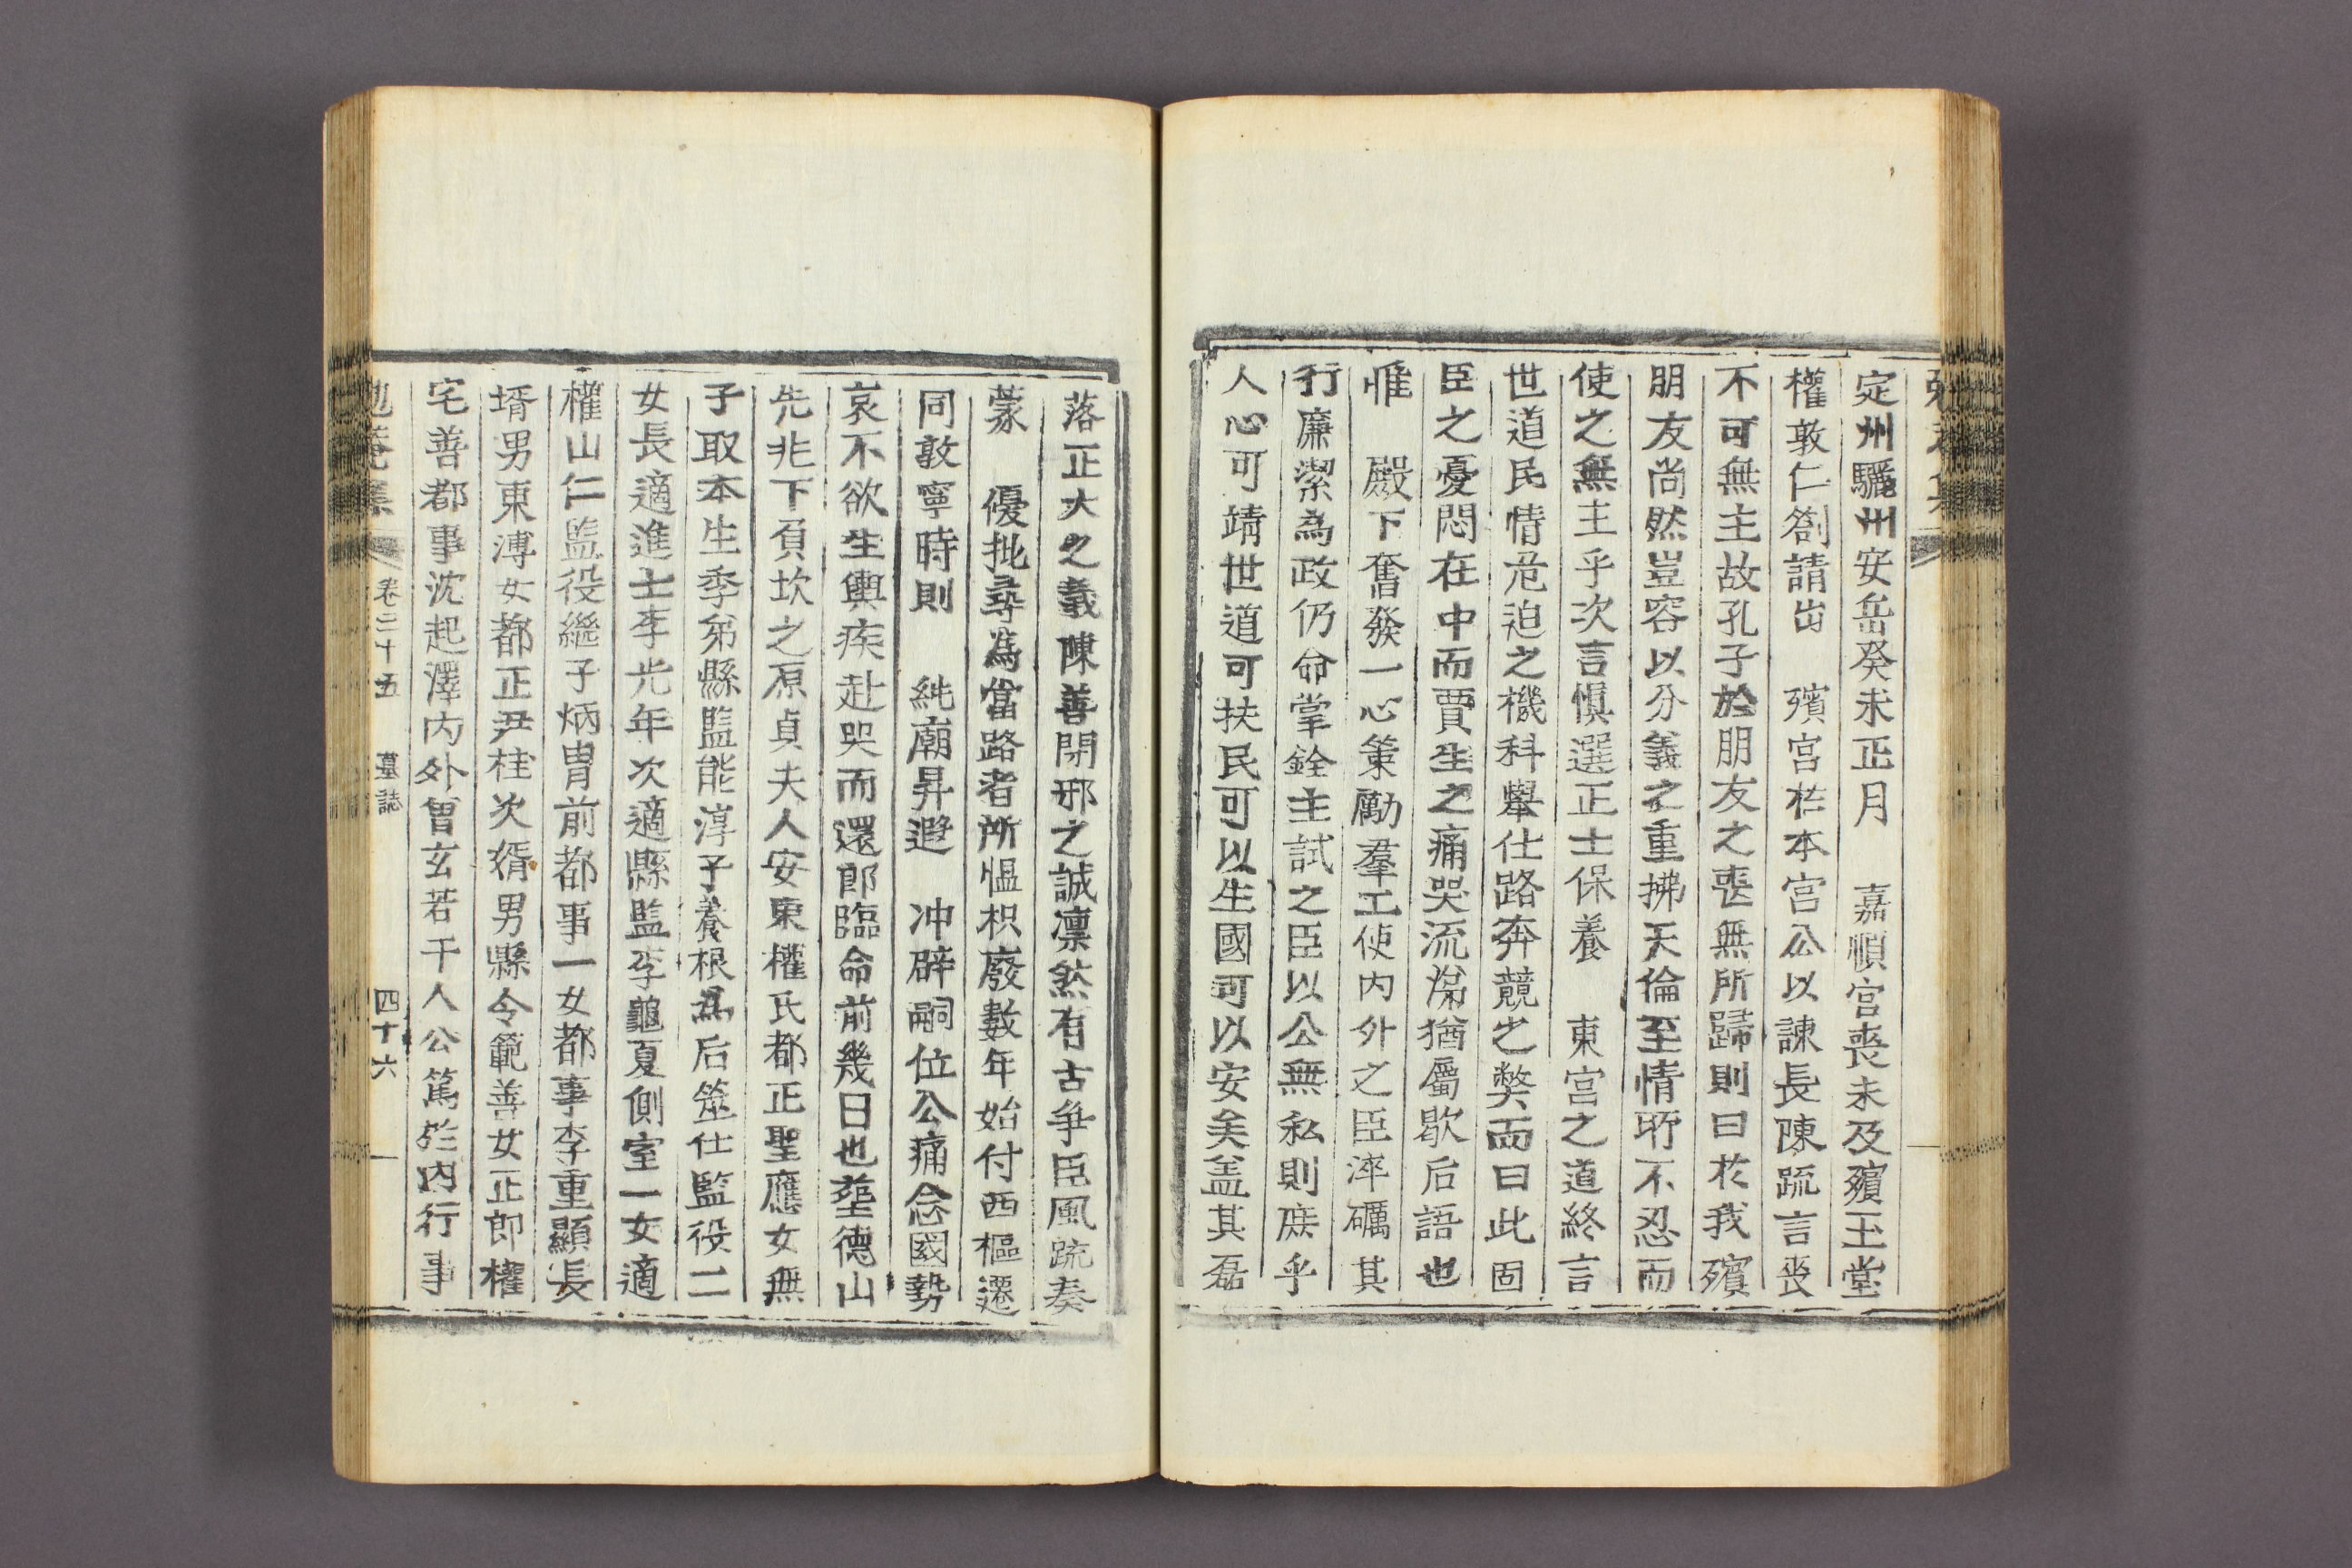 定州驪州安岳癸未正月 嘉順宮喪未及殯玉堂
權敦仁劄請出 殯宮於本宮公以諫長陳疏言喪
不可無主故孔子於朋友之喪無所歸則曰於我殯
朋友尚然豈容以分義之重拂天倫至情所不忍而
使之無主乎次言愼選正士保養 東宮之道終言
世道民情危迫之機科擧仕路奔競之獘而曰此固
臣之憂悶在中而賈生之痛哭流涕猶屬歇后語也
惟 殿下奮發一心策勵羣工使內外之臣淬礪其
行廉潔為政仍命掌銓主試之臣以公無私則庶乎
人心可靖世道可扶民可以生國可以安矣盖其磊
落正大之義陳善閉邪之誠凛然有古爭臣風疏奏
蒙 優批尋為當路者所慍枳廢數年始付西樞遷
同敦寧時則 純廟昇遐 冲辟嗣位公痛念國勢
哀不欲生輿疾赴哭而還郎臨命前幾日也塟德山
先兆下負坎之原貞夫人安東權氏都正聖應女無
子取本生季弟縣監能淳子養根爲后筮仕監役二
女長適進士李光年次適縣監李龜夏側室一女適
權山仁監役繼子炳胄前都事一女都事李重顯長
壻男東溥女都正尹柱次壻男縣令範善女正郎權
宅善都事沈起澤內外曾玄若干人公篤於內行事
勉菴集 卷二十五 墓誌 四十六